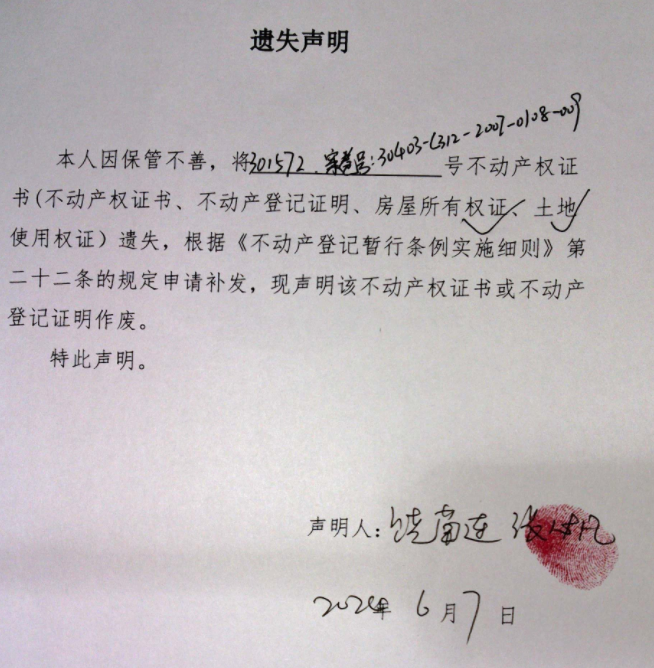 遗失声明
本人因保管不善，将301572、宗地号：30403-(312-2007-0108-009号不动产权证
书(不动产权证书、不动产登记证明、房屋所有权证、土地
使用权证）遗失，根据《不动产登记暂行条例实施细则》第
二十二条的规定申请补发，现声明该不动产权证书或不动产
登记证明作废。
特此声明。
声明人：饶南连 张
2024年 6月7日